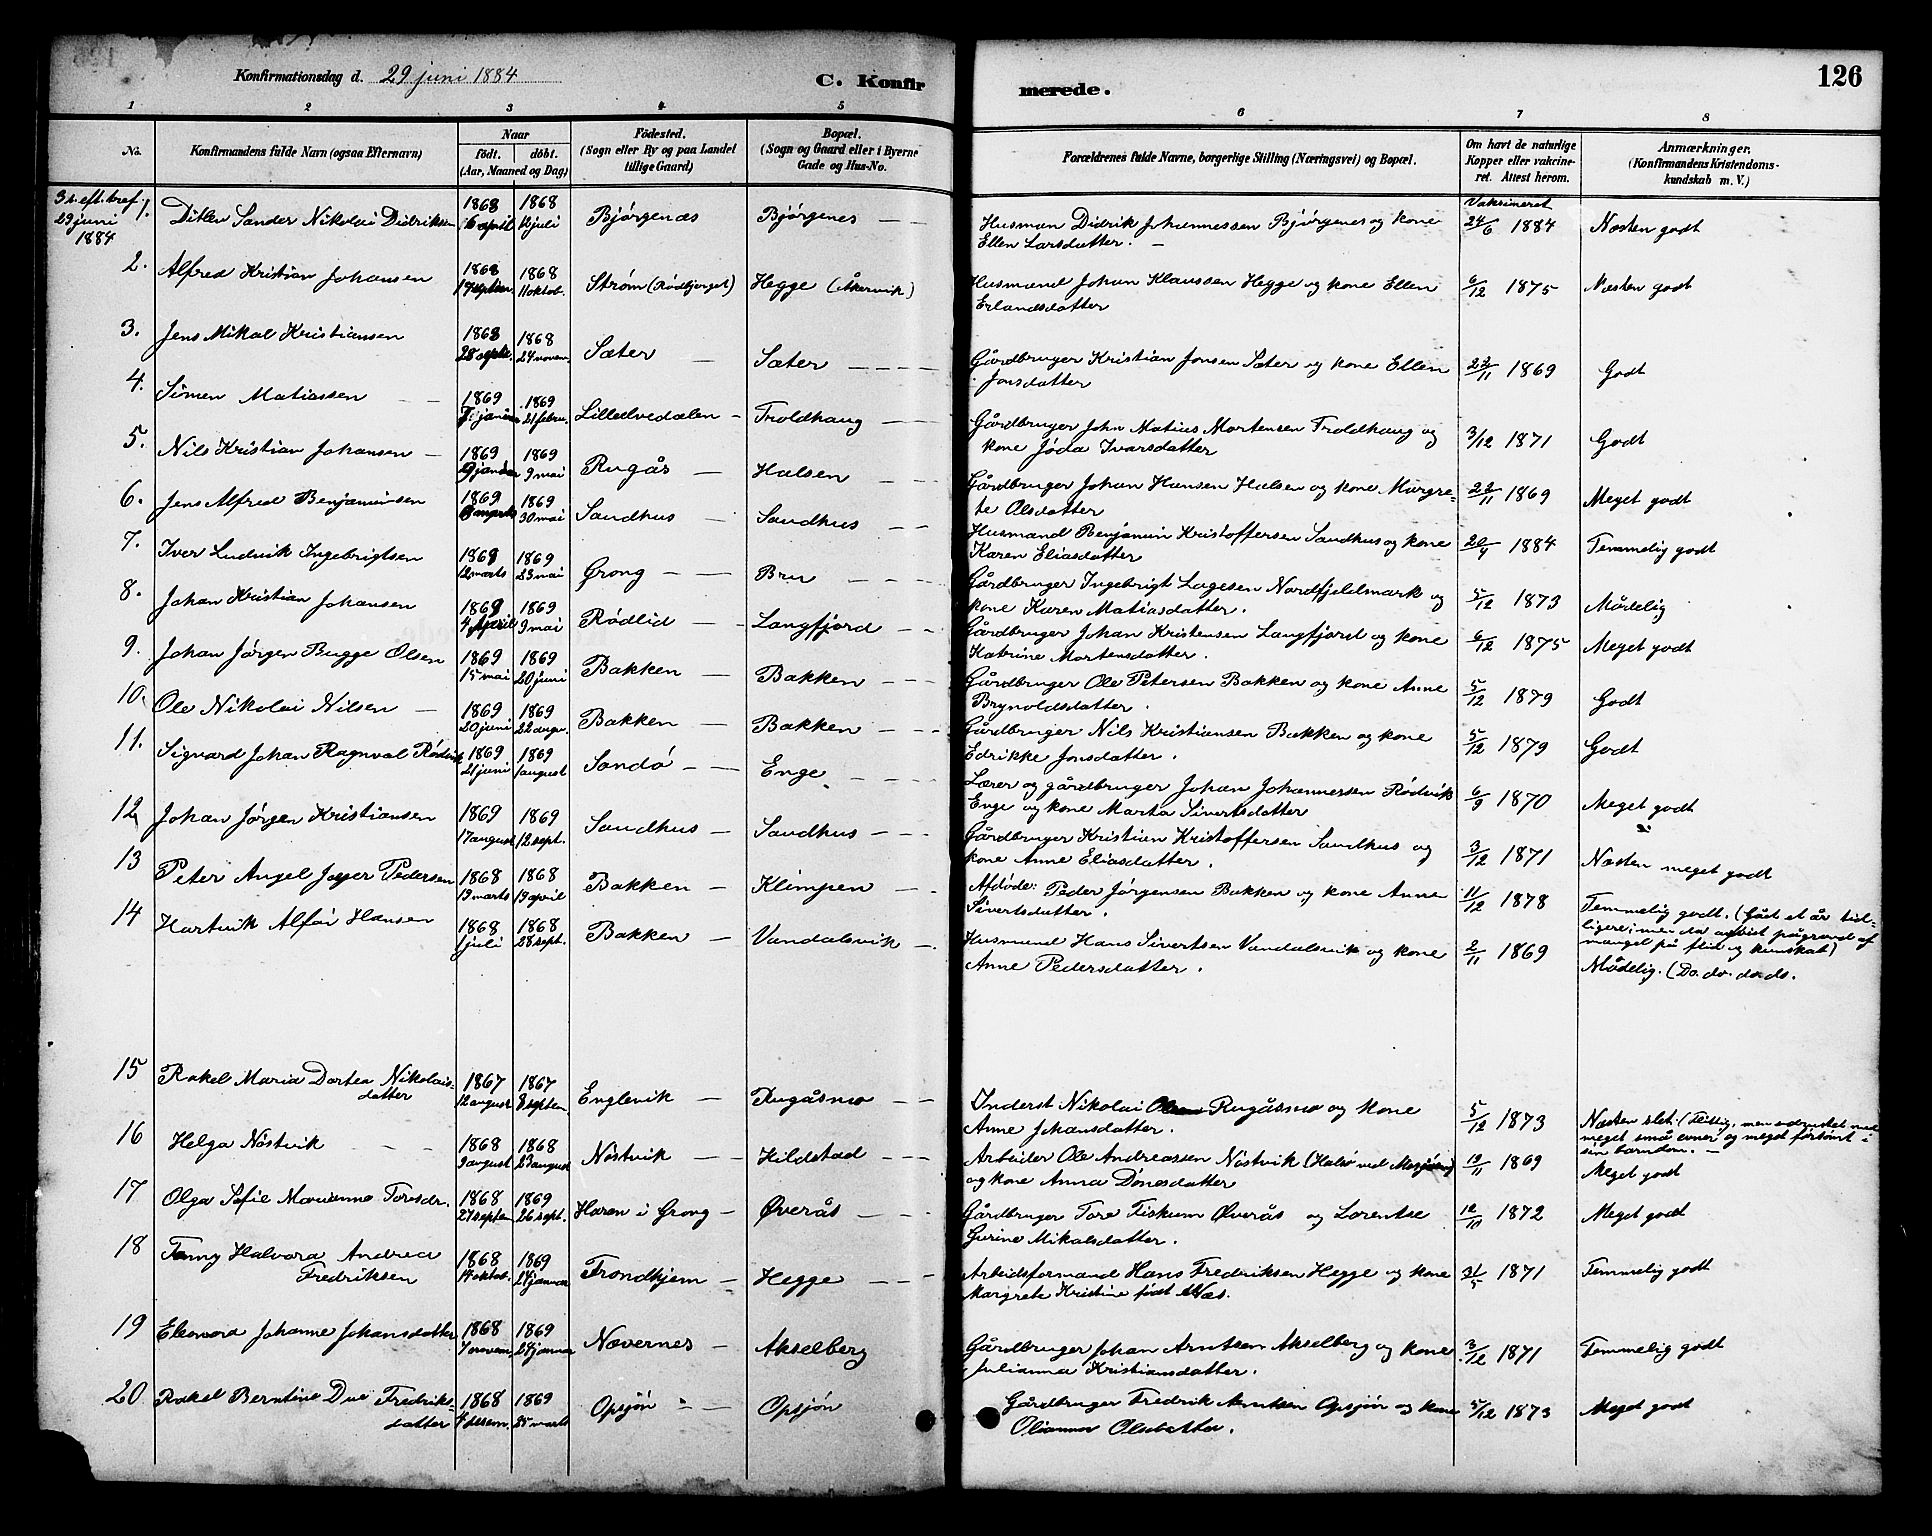 Konfirmationsdag d. 29 juni 1884
C. Konfirmerede.
126
1 2 3 4 5 6 7 8
No.
Konfirmandens fulde Navn (ogsaa Efternavn)
Naar
födt. döbt.
(Aar, Maaned og Dag)
Födested.
(Sogn eller By og paa Landet
tillige Gaard)
Bopæl.
(Sogn og Gaard eller i Byerne
Gade og Hus-No.
Forældrenes fulde Navne, borgerlige Stilling (Næringsvei) og Bopæl.
Om havt de naturlige
Kopper eller vakcine-
ret. Attest herom.
Anmærkninger.
(Konfirmandens Kristendoms-
kundskab m. V.)
3 s. eft. tref.
29 juni
1884
1. Ditlev Sander Nikolai Didriksen
1868 april
1868 12 juli
Bjørgenæs
Bjørgenes
Husman Didrik Johannessen Bjørgenes og kone
Ellen Larsdatter.
Vaksineret
24/6 1884
Næsten godt
2. Alfred Kristian Johansen
1868 17 septem
1868 11 oktob.
Strøm (Rødbjerget)
Hegge (Åkervik)
Husmand Johan Klaussen Hegge og kone Ellen
Erlandsdatter
6/12 1875
Næsten godt
3. Jens Mikal Kristiansen
1868 28 septe.
1868 24 novem
Sæter
Sæter
Gårdbruger Kristian Jonsen Sæter og kone Ellen
Jonsdatter
22/11 1869
Godt
4. Simen Matiassen
1869 januar
1869 21 febru.
Lilleelvedalen
Troldhaug
Gårdbruger John Matias Mortensen Troldhaug og
kone Jøda Ivarsdatter
3/12 1871
Godt
5. Nils Kristian Johansen
1869 januar
1869 9 mai
Rugås
Halsen
Gårdbruger Johan Hansen Halsen og kone Margre-
te Olsdatter
22/11 1869
Meget godt
6. Jens Alfred Benjaminsen
1869 marts
1869 30 mai
Sandhus
Sandhus
Husmand Benjamin Kristoffersen Sandhus og kone
Karen Eliasdatter
20/4 1884
Temmelig godt
7. Iver Ludvik Ingebrigtsen
1869 12 marts
1869 23 mai
Grong
Bru
Gårdbruger Ingebrigt Lagesen Nordfjeldmark og
kone Karen Matiasdatter.
5/12 1873
Mådelig
8. Johan Kristian Johansen
1869 4 April
1869 9 mai
Rødlid
Langfjord
Gårdbruger Johan Kristensen Langfjord og kone
Katrine Mortensdatter.
6/12 1875
Meget godt
9. Johan Jørgen Bugge Olsen
1869 15 mai
1869 20 juni
Bakken
Bakken
Gårdbruger Ole Petersen Bakken og kone Anne
Brynoldsdatter.
5/12 1879
Godt
10. Ole Nikolai Nilsen
1869 20 juni
1869 22 augu.
Bakken
Bakken
Gårdbruger Nils Kristiansen Bakken og kone
Edrikke Jonsdatter.
5/12 1879
Godt
11. Sigvard Johan Ragnval Rødvik
1869 21 juni
1869 1 august
Sandø
Enge
Lærer og gårdbruger Johan Johannersen Rødvik
Enge og kone Marta Sivertsdatter
6/9 1870
Meget godt
12 Johan Jørgen Kristiansen
1869 17 august
1869 12 sept.
Sandhus
Sandhus
Gårdbruger Kristian Kristoffersen Sandhus og
kone Anne Eliasdatter.
3/12 1871
Næsten meget godt
13 Peter Angel Jesper Pedersen
1868 13 marts
1868 13 april
Bakken
Klimpen
Afdøde: Peder Jørgensen Bakken og kone Anne
Sivertsdatter.
11/12 1878
Temmelig godt. (Gået et år tid-
ligere, men da avvist pågrund af
mangel på flid og kunskab)
14 Hartvik Alfær Hansen
1868 1 juli
1868 28 sept.
Bakken
Vandalsvik
Husmand Hans Sivertsen Vandalsvik og kone
Anne Pedersdatter.
2/11 1869
Mådelig. (Do. do. do. do.
15 Rakel Maria Dortea Nikolais-
datter
1867 12 august
1867 8 septem
Englevik
Rugåsmo
Inderst Nikolai Olsen Rugåsmo og kone
Anne Johansdatter.
5/12 1873
Næsten slet. (Flittig, men udrustet med
meget små evner og meget forsømt i
sin barndom.
16 Helga Nöstvik
1868 9 august
1868 23 august
Nöstvik
Kildstad
Arbeider Ole Andreassen Nöstvik (Halsø ved Mosjøen)
og kone Anna Dønesdatter
19/11 1869
Meget godt
17 Olga Sofie Marianne Toresdr.
1868 27 septem
1869 26 sept.
Haren i Grong
Øverås
Gårdbruger Tore Fiskum Øverås og Lorentse
Gurine Mikalsdatter.
12/10 1872
Meget godt
18 Fanny Halvora Andrea
Fredriksen
1868 14 oktob.
1869 24 januar
Trondhjem
Hegge
Arbeidsformand Hans Fredriksen Hegge og kone
Margrete Kristine født Næs.
31/5 1871
Temmelig godt
19 Eleonora Johanne Johansdatter
1868 7 novem.
1869 24 januar
Nævernes
Akselberg
Gårdbruger Johan Arntsen Akselberg og kone
Julianna Kristiansdatter.
3/12 1871
Temmelig godt
20 Rakel Berntine Due Fredriks-
datter
1868 4 desem.
1869 25 marts
Opsjøn
Opsjøn
Gårdbruger Fredrik Arntsen Opsjøn og kone
Olianna Olsdatter.
5/12 1873
Meget godt